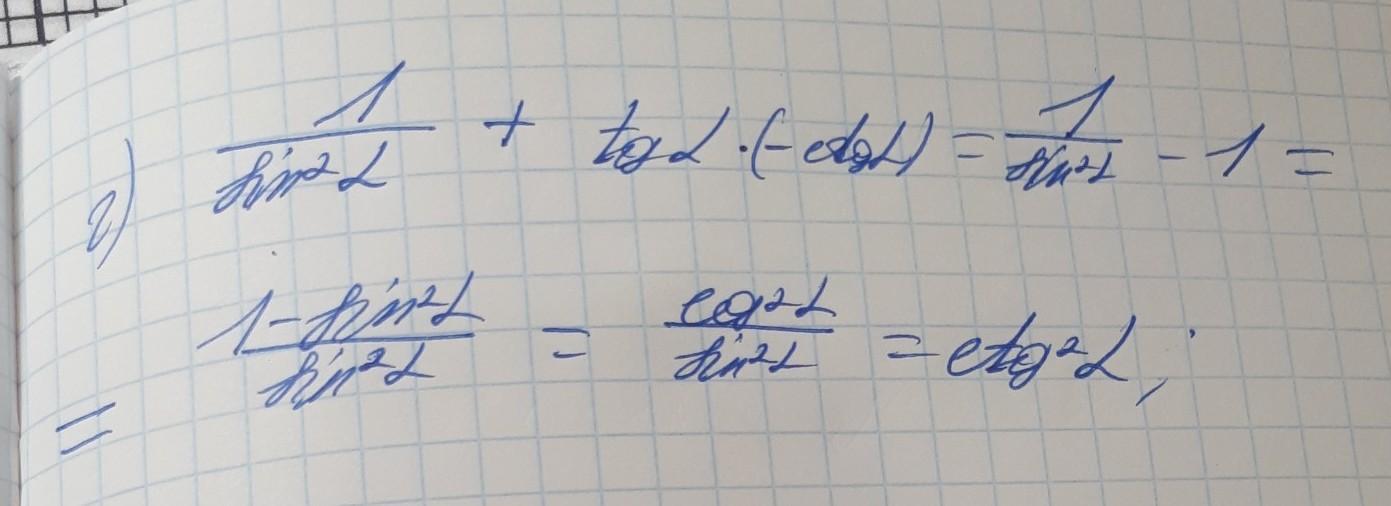 г) 1/sin²α + tgα·(-ctgα) = 1/sin²α - 1 =
= (1-sin²α)/sin²α = cos²α/sin²α = ctg²α;